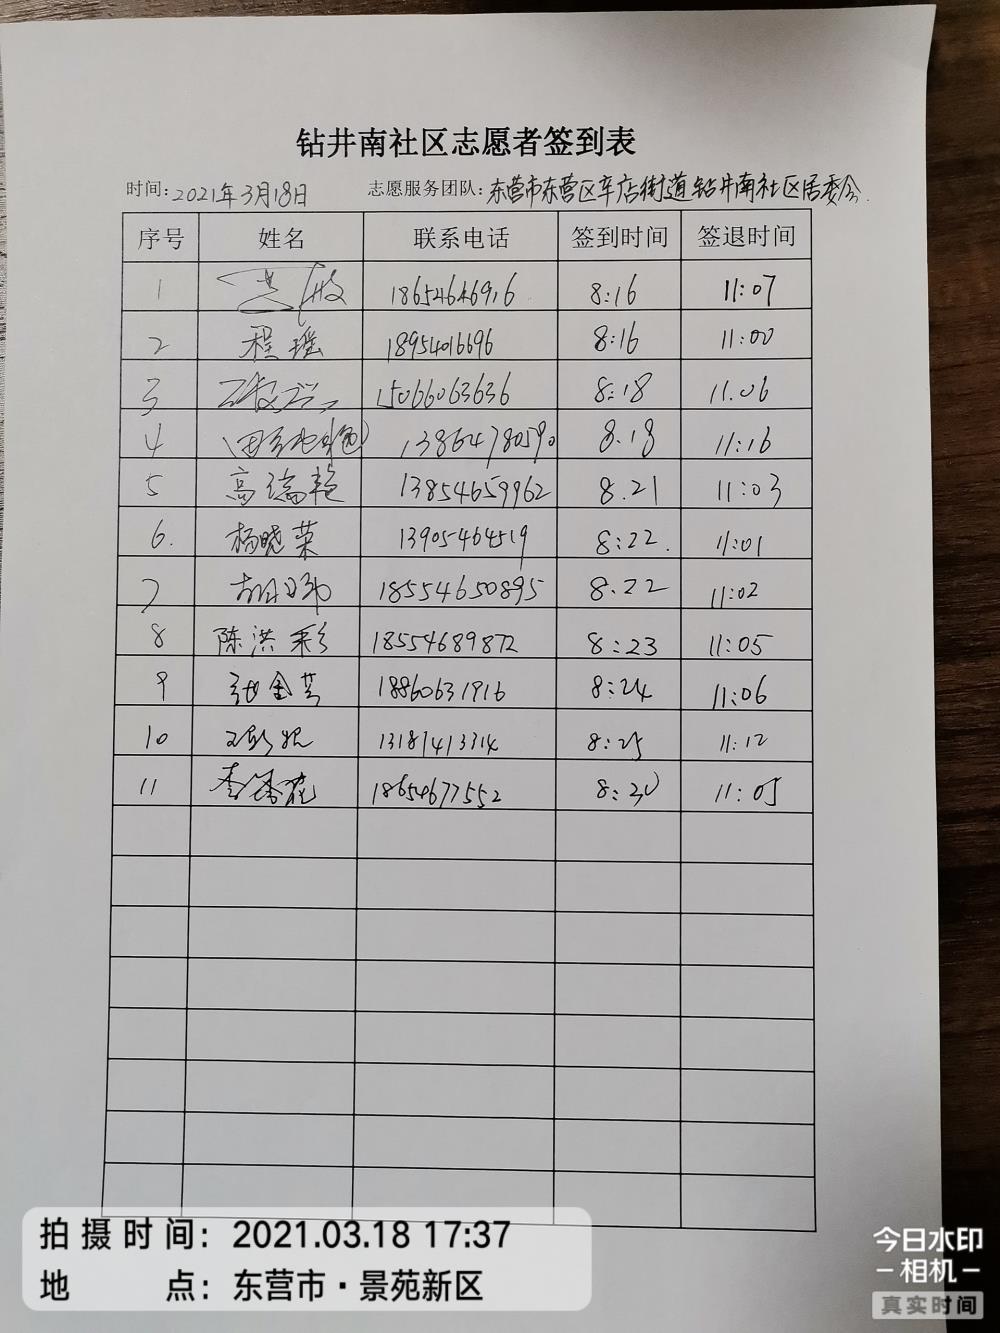 钻井南社区志愿者签到表
时间:2021年3月18日 志愿服务团队:东营市东营区辛店街道钻井南社区居委会.
序号 姓名 联系电话 签到时间 签退时间
1 18654646916 8:16 11:07
2 程瑶 18954016696 8:16 11:00
3 15066063636 8:18 11.06
4 13864780590 8.18 11:16
5 高瑞艳 13854659962 8.21 11:03
6. 杨晓荣 13905464519 8:22. 11:01
7 18554650895 8.22 11:02
8 陈洪彩 18554689872 8:23 11:05
9 张金芝 18860631916 8:24 11:06
10 13187413314 8:25 11:12
11 李香花 18654677552 8:30 11:05
拍摄时间:2021.03.18 17:37
地点:东营市·景苑新区
今日水印
-相机-
真实时间